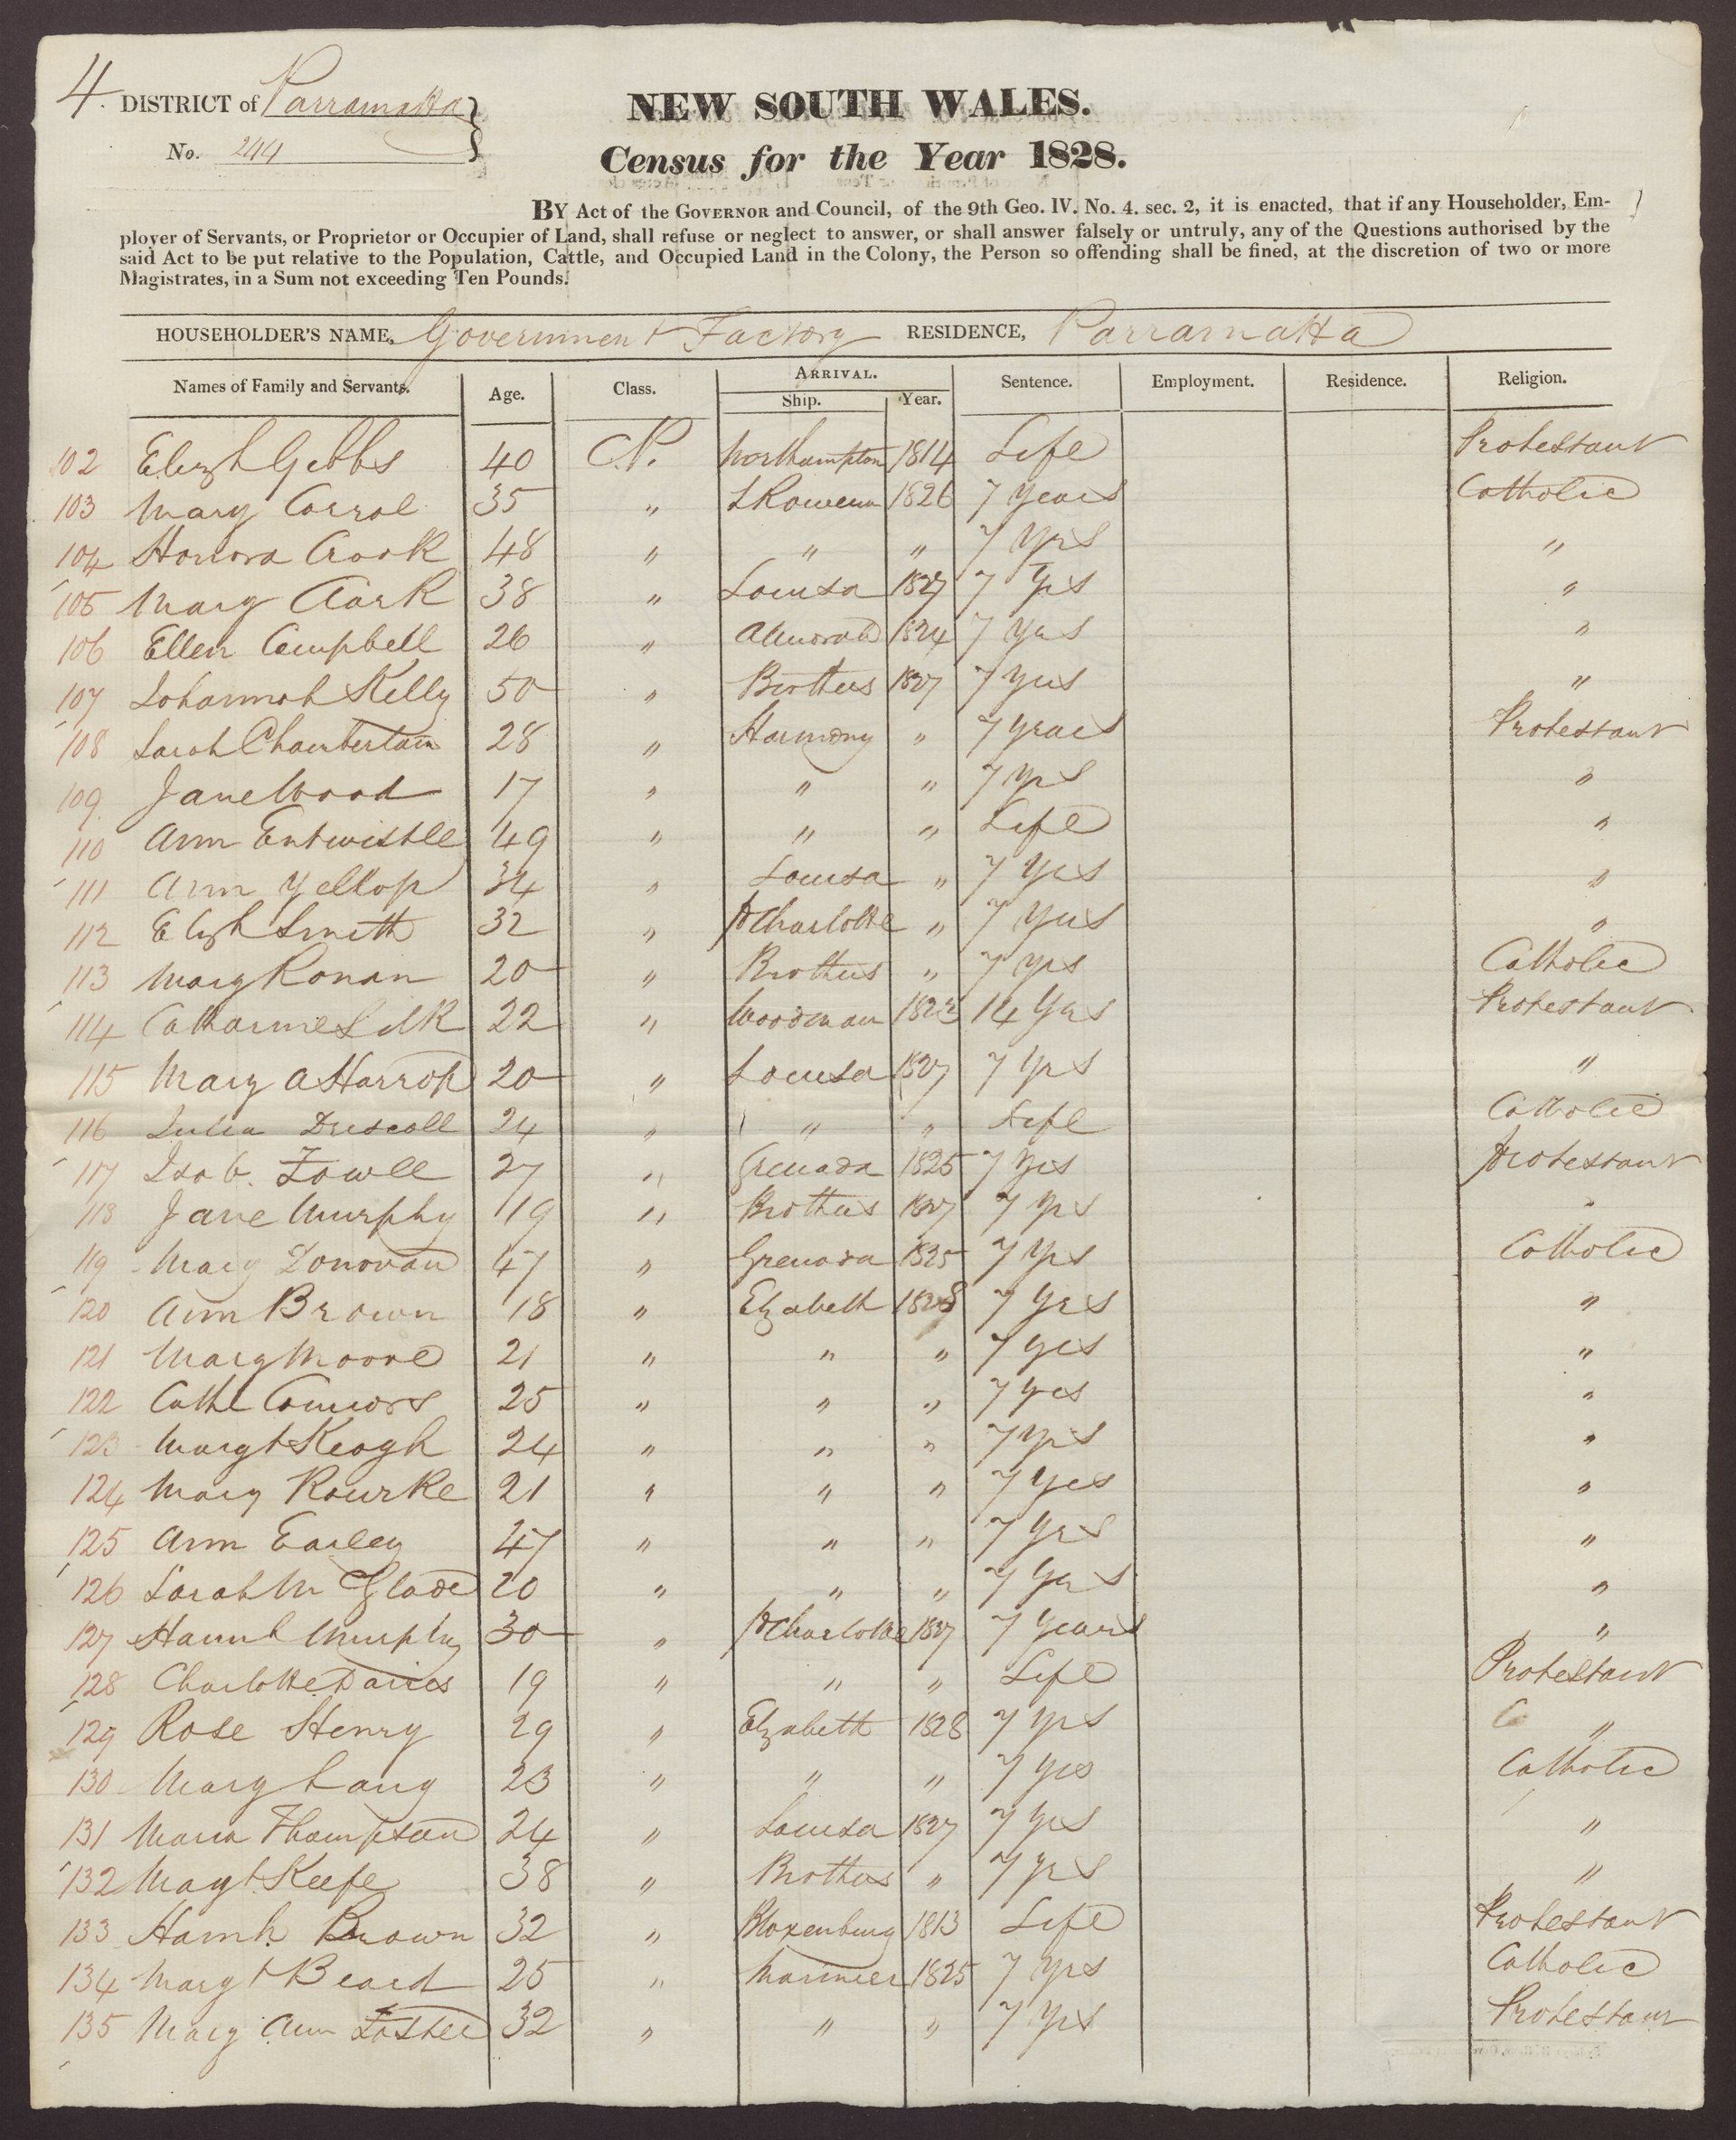 4. DISTRICT of Parramatta
No. 244
NEW SOUTH WALES.
Census for the Year 1828.
BY Act of the GOVERNOR and Council, of the 9th Geo. IV. No. 4. sec. 2, it is enacted, that if any Householder, Em-
ployer of Servants, or Proprietor or Occupier of Land, shall refuse or neglect to answer, or shall answer falsely or untruly, any of the Questions authorised by the
said Act to be put relative to the Population, Cattle, and Occupied Land in the Colony, the Person so offending shall be fined, at the discretion of two or more
Magistrates, in a Sum not exceeding Ten Pounds.
HOUSEHOLDER'S NAME, Government Factory RESIDENCE, Parramatta
Names of Family and Servants. Age. Class. ARRIVAL. Ship. Year. Sentence. Employment. Residence. Religion.
102 Elizth Gibbs 40 C. Northampton 1814 Life Protestant
103 Mary Carrol 35 " Rowena 1826 7 years Catholic
104 Honora Crook 48 " " " 7 yrs "
105 Mary Clark 38 " Louisa 1827 7 yrs "
106 Ellen Campbell 26 " Almorah 1824 7 yrs "
107 Johannah Kelly 50 " Brothers 1827 7 yrs "
108 Sarah Chamberlain 28 " Harmony " 7 years Protestant
109 Jane Wood 17 " " " 7 yrs "
110 Ann Entwistle 49 " " " Life "
111 Ann Yellop 34 " Louisa " 7 yrs "
112 Elizh Smith 32 " Charlotte " 7 yrs "
113 Mary Ronan 20 " Brothers " 7 yrs Catholic
114 Catharine Silk 22 " Woodman 1823 14 yrs Protestant
115 Mary A Harrop 20 " Louisa 1827 7 yrs "
116 Julia Driscoll 24 " " " Life Catholic
117 Isab. Fowll 27 " Grenada 1825 7 yrs Protestant
118 Jane Murphy 19 " Brothers 1827 7 yrs "
119 Mary Donovan 47 " Grenada 1825 7 yrs Catholic
120 Ann Brown 18 " Elzabeth 1828 7 yrs "
121 Mary Moore 21 " " " 7 yrs "
122 Cathe Connors 25 " " " 7 yrs "
123 Margt Keogh 24 " " " 7 yrs "
124 Mary Rourke 21 " " " 7 yrs "
125 Ann Earley 47 " " " 7 yrs "
126 Sarah Mc Glade 20 " " " 7 yrs "
127 Hannh Murphy 30 " Charlotte 1827 7 years "
128 Charlotte Davies 19 " " " Life Protestant
129 Rose Henry 29 " Elzabeth 1828 7 yrs "
130 Mary Lang 23 " " " 7 yrs Catholic
131 Maria Thompson 24 " Louisa 1827 7 yrs "
132 Margt Keefe 38 " Brothers " 7 yrs "
133 Hannh. Brown 32 " Wloxenburg 1813 Life Protestant
134 Margt Beard 25 " Mariner 1825 7 yrs Catholic
135 Mary Ann Foster 32 " " " 7 yrs Protestant